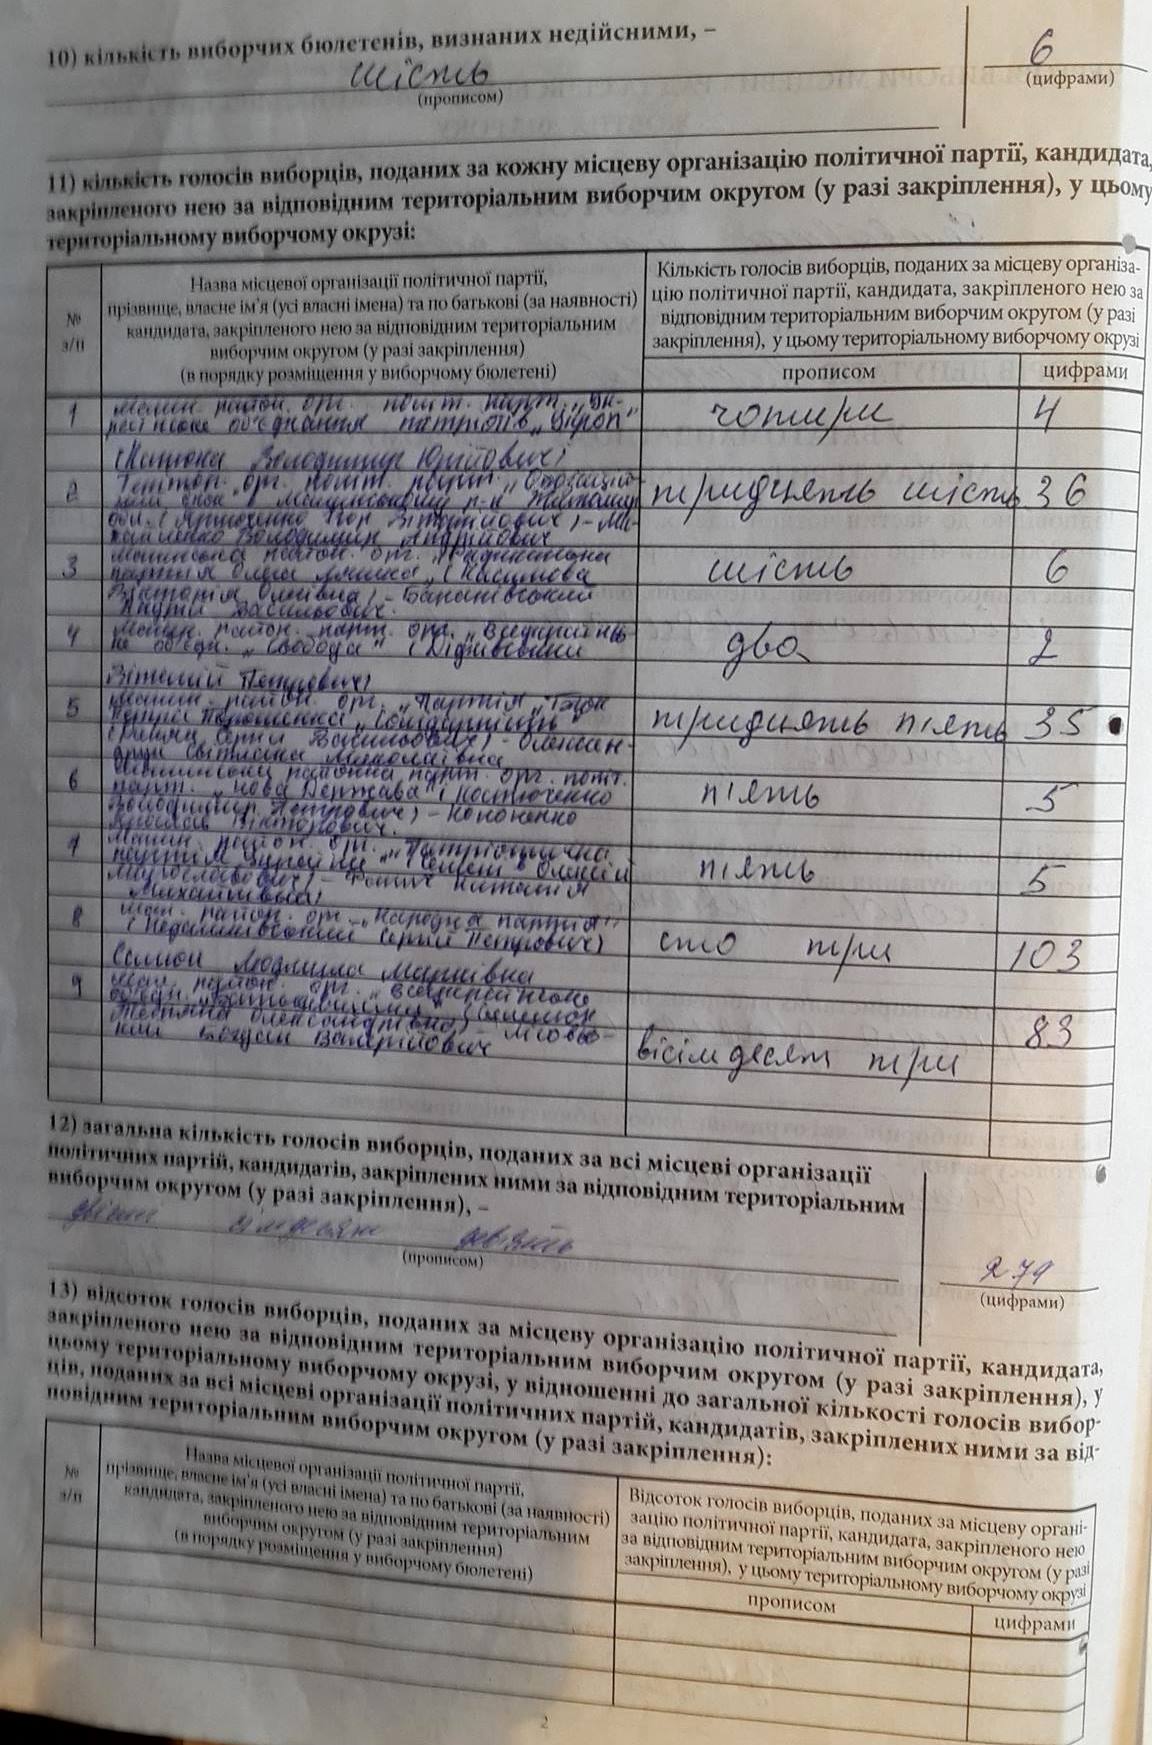 10) кількість виборчих бюлетенів, визнаних недійсними, –
шість
6
(прописом)
(цифрами)
11) кількість голосів виборців, поданих за кожну місцеву організацію політичної партії, кандидата,
закріпленого нею за відповідним територіальним виборчим округом (у разі закріплення), у цьому
територіальному виборчому окрузі:
№
з/п
Назва місцевої організації політичної партії,
прізвище, власне ім'я (усі власні імена) та по батькові (за наявності)
кандидата, закріпленого нею за відповідним територіальним
виборчим округом (у разі закріплення)
(в порядку розміщення у виборчому бюлетені)
Кількість голосів виборців, поданих за місцеву організа-
цію політичної партії, кандидата, закріпленого нею за
відповідним територіальним виборчим округом (у разі
закріплення), у цьому територіальному виборчому окрузі
прописом
цифрами
1
район. орг. політ. парт. „Ук-
об'єднання патріотів „Укроп"
Володимир Юрійович)
чотири
4
2
орг. політ. партії
р-ні
Вікторович) – Ми-
Володимир Андрійович
тридцять шість
36
3
район. орг. „Радикальна
партія Олега Ляшка"
Вікторія Олегівна) –
Васильович.
шість
6
4
район. парт. орг. „Всеукраїнсь-
ке об'єдн. „Свобода"
Віталій Петрович)
два
2
5
район. орг. „Партія „Блок
Петра Порошенка „Солідарність"
Сергій Васильович) – Олексан-
Світлана Миколаївна
тридцять п'ять
35
6
районна парт. орг. політ.
парт. „Нова Держава" (Костюченко
Володимир Петрович) – Кононенко
Ярослав Вікторович.
п'ять
5
7
район. орг. „Патріотична
партія України" Олексій
Наталія
Михайлівна)
п'ять
5
8
район. орг. „Народна партія"
(Недашківський Сергій Петрович)
Людмила Марківна
сто три
103
9
район. орг. „Всеукраїнське
об'єдн. „Батьківщина"
Тетяна Олександрівна) –
Богдан Валерійович
вісімдесят три
83
12) загальна кількість голосів виборців, поданих за всі місцеві організації
політичних партій, кандидатів, закріплених ними за відповідним територіальним
виборчим округом (у разі закріплення), –
двісті сімдесят дев'ять
(прописом)
279
(цифрами)
13) відсоток голосів виборців, поданих за місцеву організацію політичної партії, кандидата,
закріпленого нею за відповідним територіальним виборчим округом (у разі закріплення), у
цьому територіальному виборчому окрузі, у відношенні до загальної кількості голосів вибор-
ців, поданих за всі місцеві організації політичних партій, кандидатів, закріплених ними за від-
повідним територіальним виборчим округом (у разі закріплення):
№
з/п
Назва місцевої організації політичної партії,
прізвище, власне ім'я (усі власні імена) та по батькові (за наявності)
кандидата, закріпленого нею за відповідним територіальним
виборчим округом (у разі закріплення)
(в порядку розміщення у виборчому бюлетені)
Відсоток голосів виборців, поданих за місцеву органі-
зацію політичної партії, кандидата, закріпленого нею
за відповідним територіальним виборчим округом (у разі
закріплення), у цьому територіальному виборчому окрузі
прописом
цифрами
2